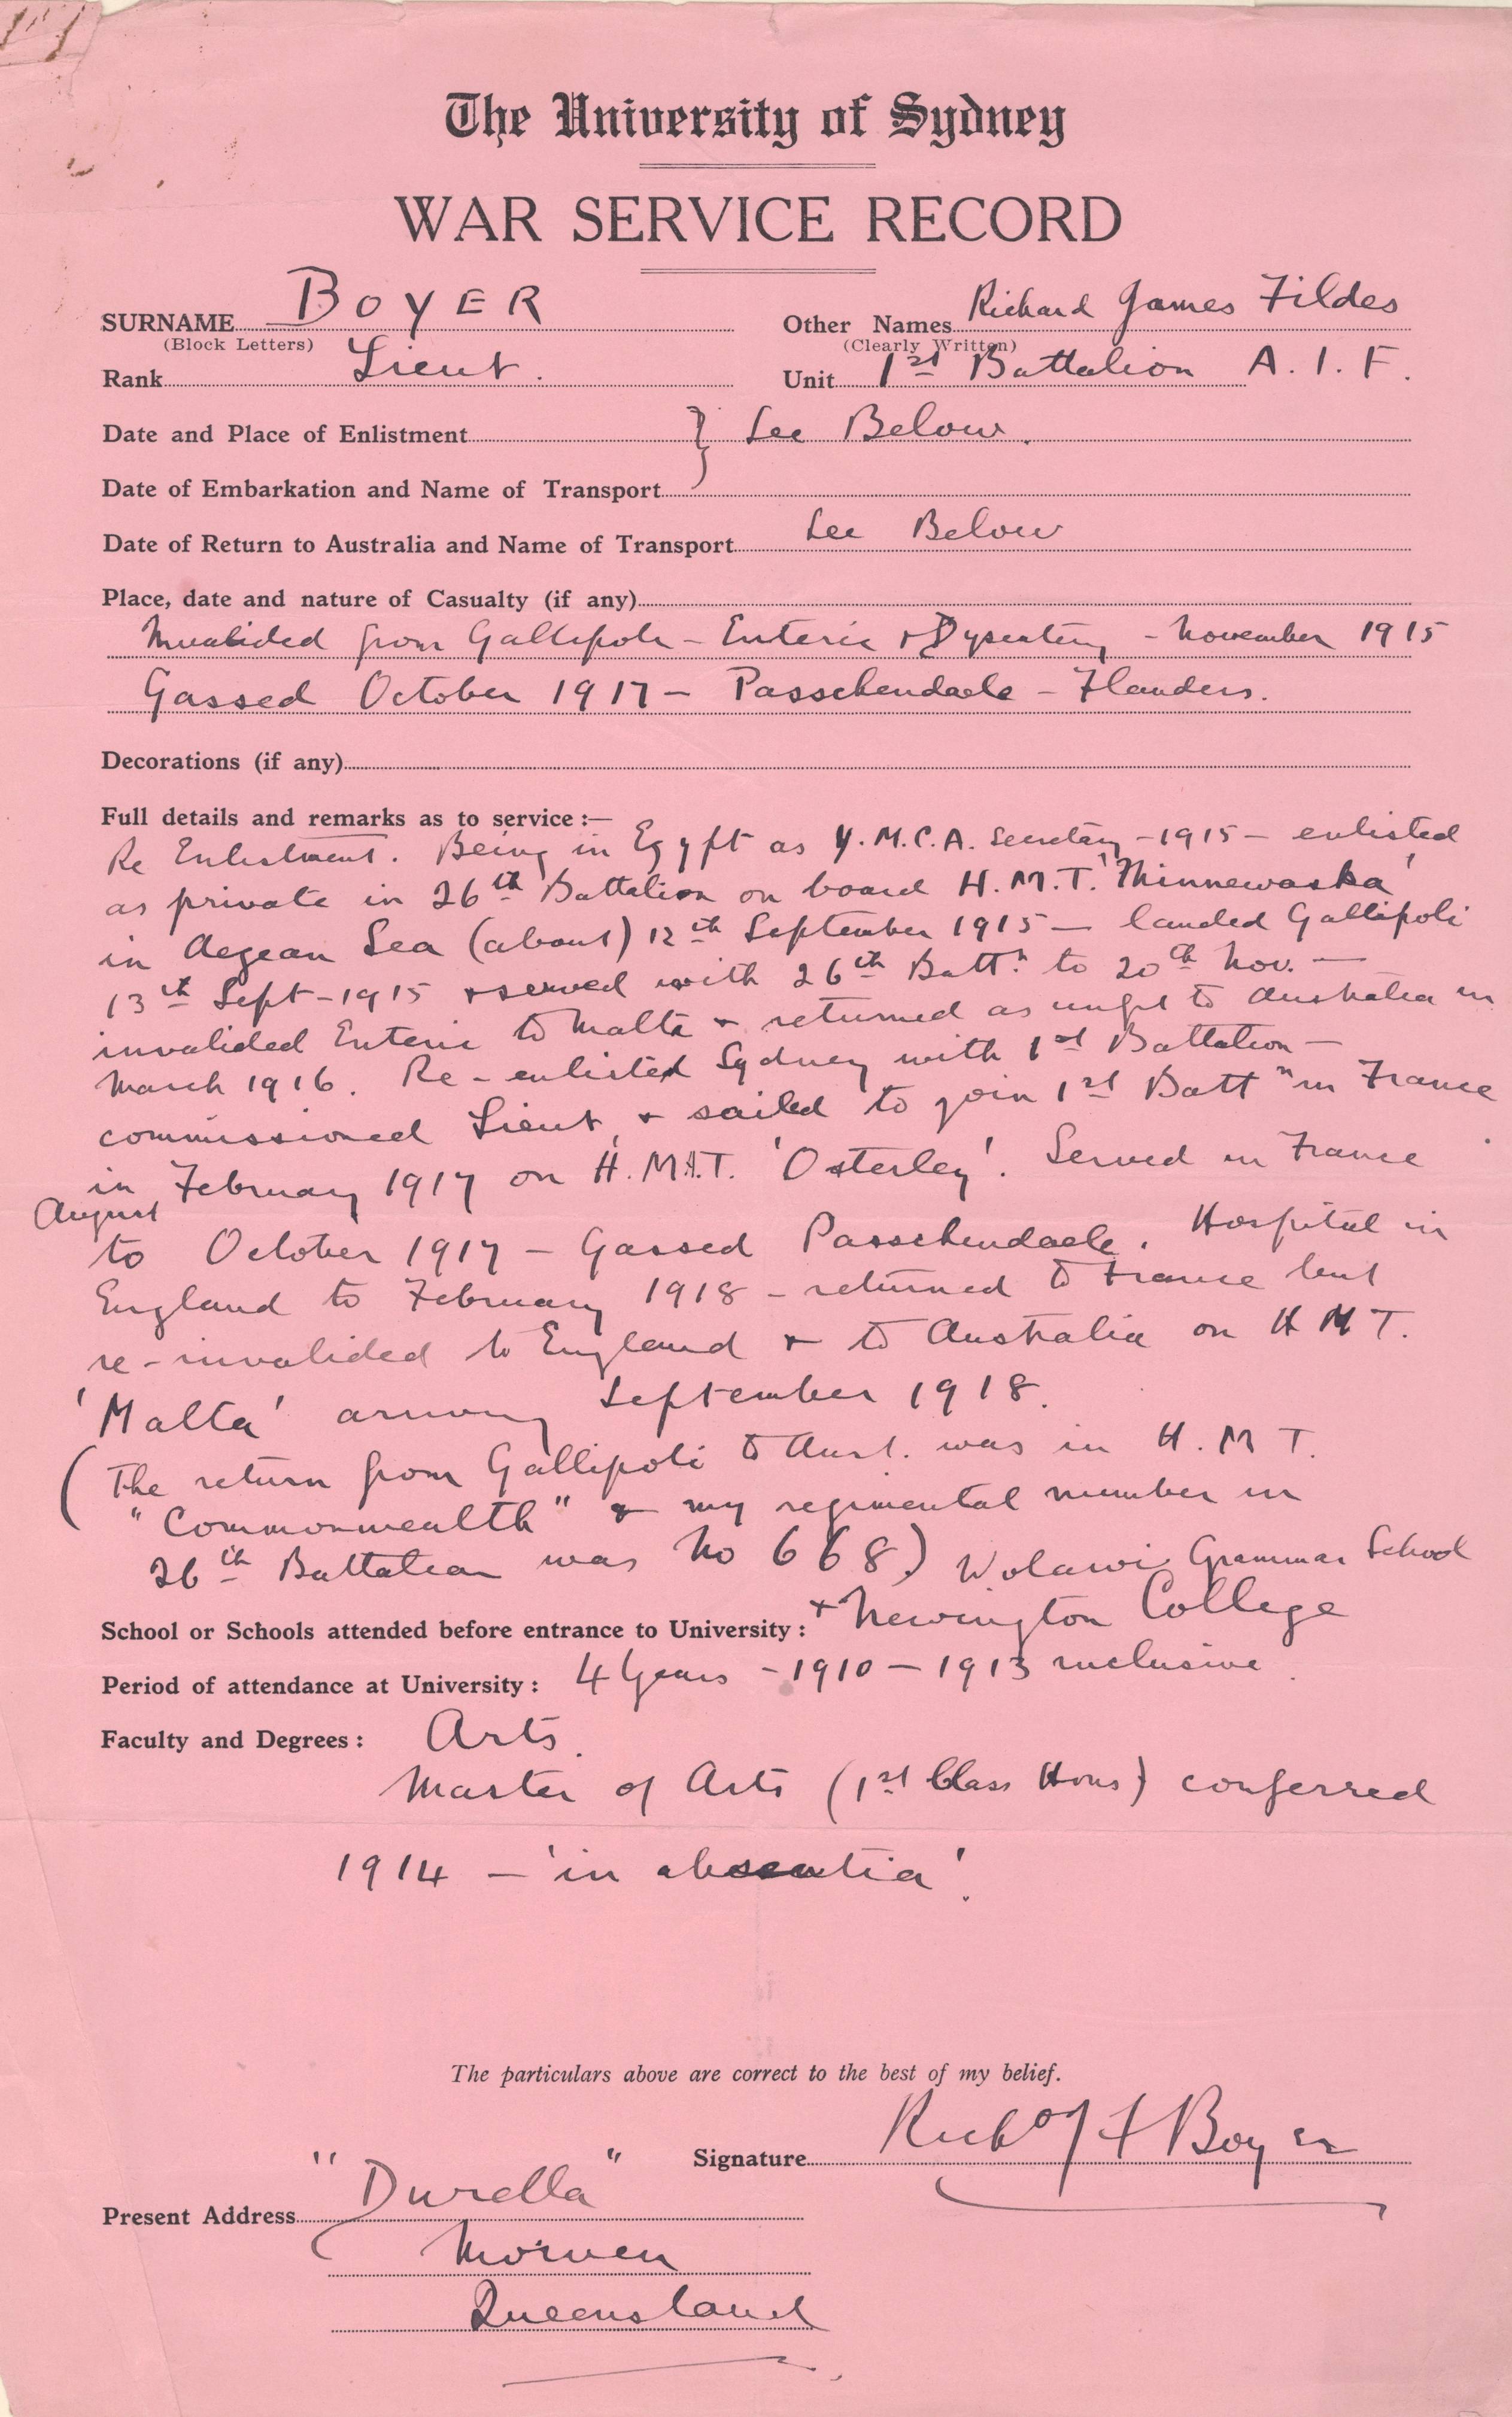 The University of Sydney
WAR SERVICE RECORD
SURNAME BOYER Other Names Richard James Fildes
(Block Letters) (Clearly Written)
Rank Lieut. Unit 1st Battalion A.I.F.
Date and Place of Enlistment } See Below.
Date of Embarkation and Name of Transport
Date of Return to Australia and Name of Transport See Below
Place, date and nature of Casualty (if any)
Invalided from Gallipoli - Enteric & Dysentery - November 1915
Gassed October 1917 - Passchendaele - Flanders.
Decorations (if any)
Full details and remarks as to service :—
Re Enlistment. Being in Egypt as Y.M.C.A. Secretary - 1915 - enlisted
as private in 26th Battalion on board H.M.T. 'Minnewaska'
in Aegean Sea (about) 12th September 1915 — landed Gallipoli
13th Sept - 1915 & served with 26th Battn. to 20th Nov. —
invalided Enteric to Malta & returned as unfit to Australia in
March 1916. Re-enlisted Sydney with 1st Battalion —
commissioned Lieut, & sailed to join 1st Battn in France
in February 1917 on H.M.A.T. 'Osterley'. Served in France
August
to October 1917 - Gassed Passchendaele. Hospital in
England to February 1918 - returned to France but
re-invalided to England & to Australia on H M T.
'Malta' arriving September 1918.
(The return from Gallipoli to Aust. was in H. M T.
"Commonwealth" & my regimental number in
26th Battalion was No 668) Wolaroi Grammar School
School or Schools attended before entrance to University : + Newington College
Period of attendance at University : 4 Years - 1910 - 1913 inclusive.
Faculty and Degrees : Arts.
Master of Arts (1st Class Hons) conferred
1914 - 'in absentia'.
The particulars above are correct to the best of my belief.
Signature Richd J F Boyer
Present Address "Durella"
Morven
Queensland